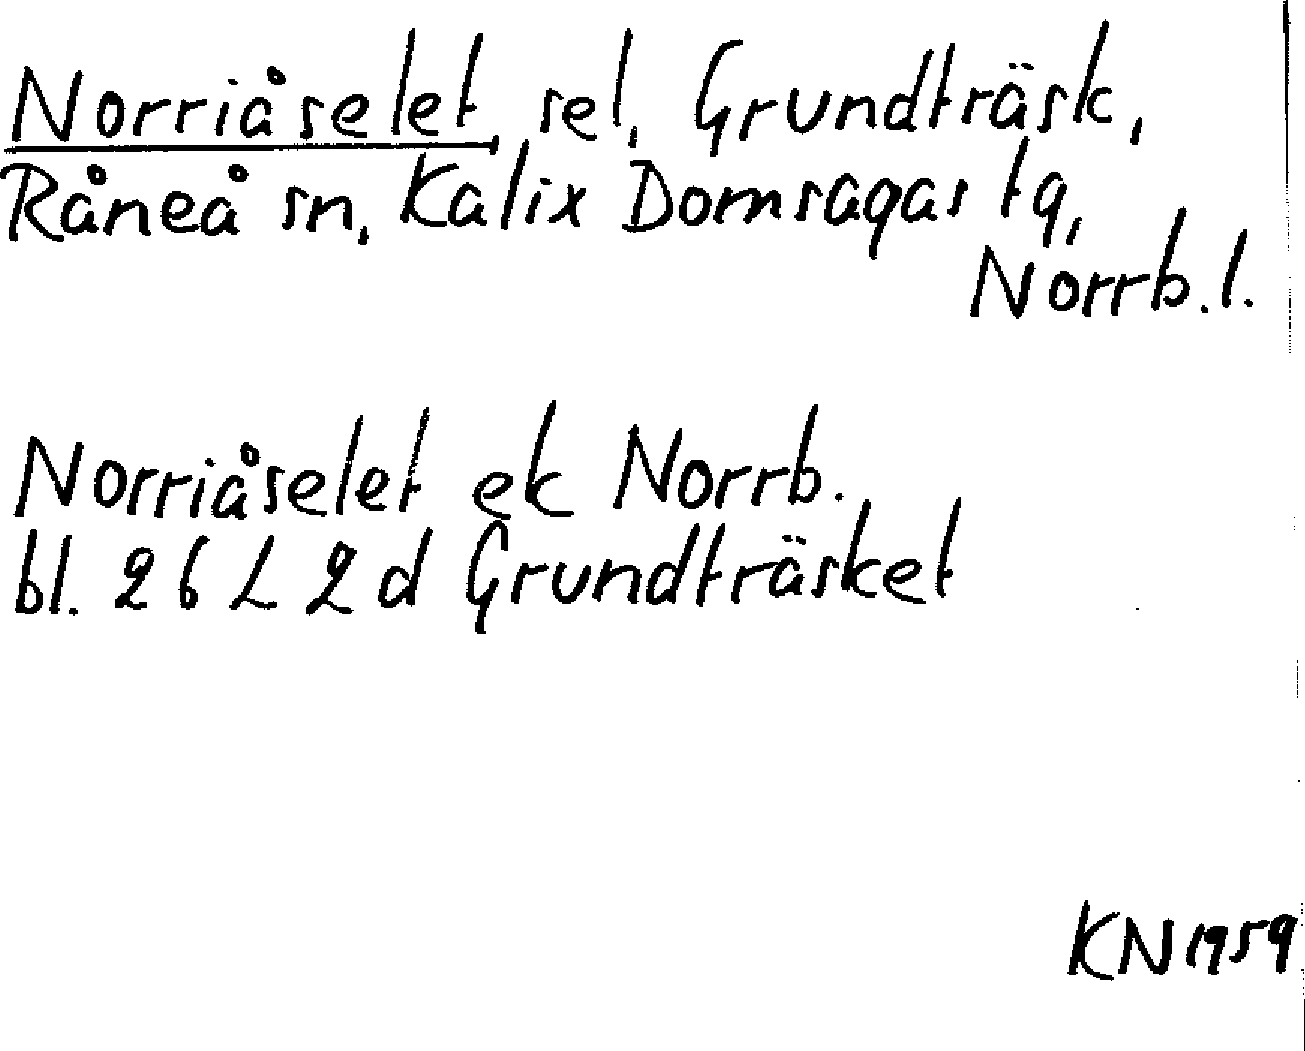 Norriåselet, sel, Grundträsk,
Råneå sn, Kalix Domsagas tg,
Norrb.l.
Norriåselet ek Norrb.
bl. 26 L 2 d Grundträsket
KN 1959